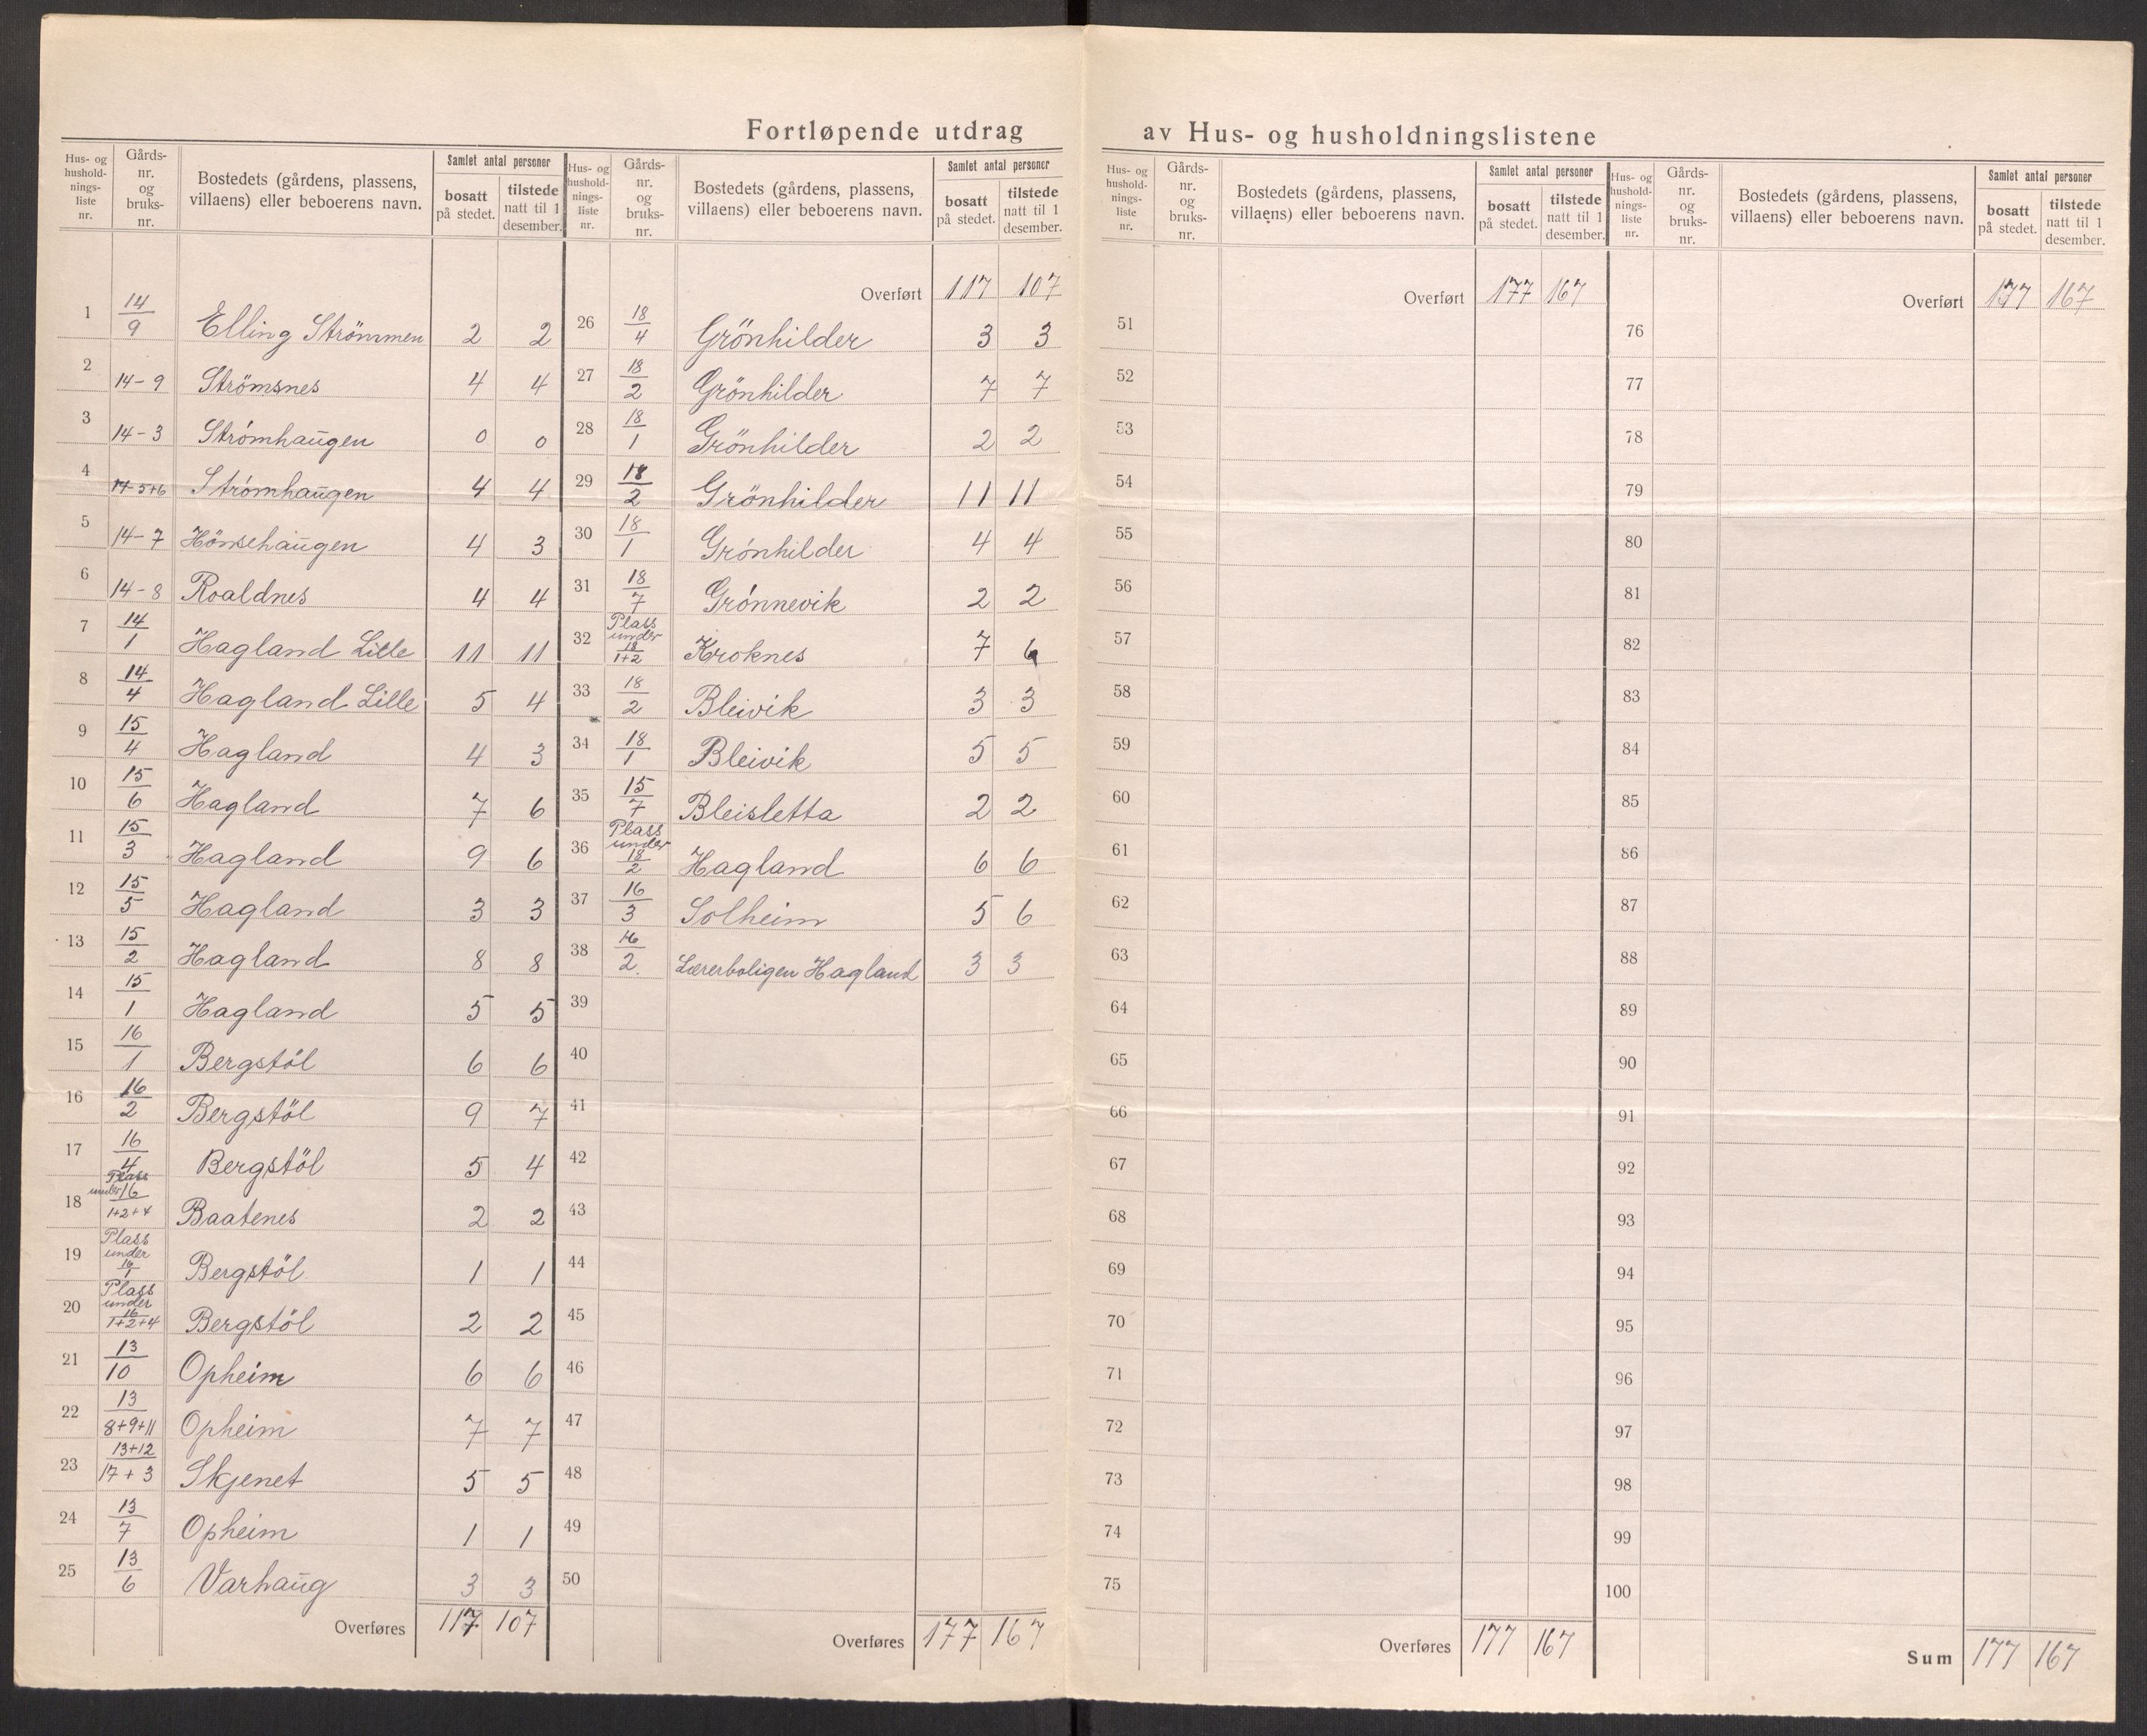 Fortløpende utdrag av Hus- og husholdningslistene
Hus- og husholdnings-liste nr. | Gårds-nr. og bruks-nr. | Bostedets (gårdens, plassens, villaens) eller beboerens navn. | Samlet antal personer | bosatt på stedet. | tilstede natt til 1 desember.
1 14/9 Elling Strömmen 2 2
2 14-9 Strömsnes 4 4
3 14-3 Strömhaugen 0 0
4 14-5+6 Strömhaugen 4 4
5 14-7 Hönsehaugen 4 3
6 14-8 Roaldnes 4 4
7 14/1 Hagland Lille 11 11
8 14/4 Hagland Lille 5 4
9 15/4 Hagland 4 3
10 15/6 Hagland 7 6
11 15/3 Hagland 9 6
12 15/5 Hagland 3 3
13 15/2 Hagland 8 8
14 15/1 Hagland 5 5
15 16/1 Bergstöl 6 6
16 16/2 Bergstöl 9 7
17 16/4 Bergstöl 5 4
18 Plass under 16/1+2+4 Baatenes 2 2
19 Plass under 16/1 Bergstöl 1 1
20 Plass under 16/1+2+4 Bergstöl 2 2
21 13/10 Opheim 6 6
22 13/8+9+11 Opheim 7 7
23 13+12/17+3 Skjenet 5 5
24 13/7 Opheim 1 1
25 13/6 Varhaug 3 3
Overføres 117 107
Hus- og husholdnings-liste nr. | Gårds-nr. og bruks-nr. | Bostedets (gårdens, plassens, villaens) eller beboerens navn. | Samlet antal personer | bosatt på stedet. | tilstede natt til 1 desember.
Overført 117 107
26 18/4 Grönhilder 3 3
27 18/2 Grönhilder 7 7
28 18/1 Grönhilder 2 2
29 18/2 Grönhilder 11 11
30 18/1 Grönhilder 4 4
31 18/7 Grönnevik 2 2
32 Plass under 18/1+2 Kroknes 7 6
33 18/2 Bleivik 3 3
34 18/1 Bleivik 5 5
35 15/7 Bleisletta 2 2
36 Plass under 18/2 Hagland 6 6
37 16/3 Solheim 5 6
38 16/2. Lærerboligen Hagland 3 3
39
40
41
42
43
44
45
46
47
48
49
50
Overføres 177 167
Hus- og husholdnings-liste nr. | Gårds-nr. og bruks-nr. | Bostedets (gårdens, plassens, villaens) eller beboerens navn. | Samlet antal personer | bosatt på stedet. | tilstede natt til 1 desember.
Overført 177 167
51
52
53
54
55
56
57
58
59
60
61
62
63
64
65
66
67
68
69
70
71
72
73
74
75
Overføres 177 167
Hus- og husholdnings-liste nr. | Gårds-nr. og bruks-nr. | Bostedets (gårdens, plassens, villaens) eller beboerens navn. | Samlet antal personer | bosatt på stedet. | tilstede natt til 1 desember.
Overført 177 167
76
77
78
79
80
81
82
83
84
85
86
87
88
89
90
91
92
93
94
95
96
97
98
99
100
Sum 177 167